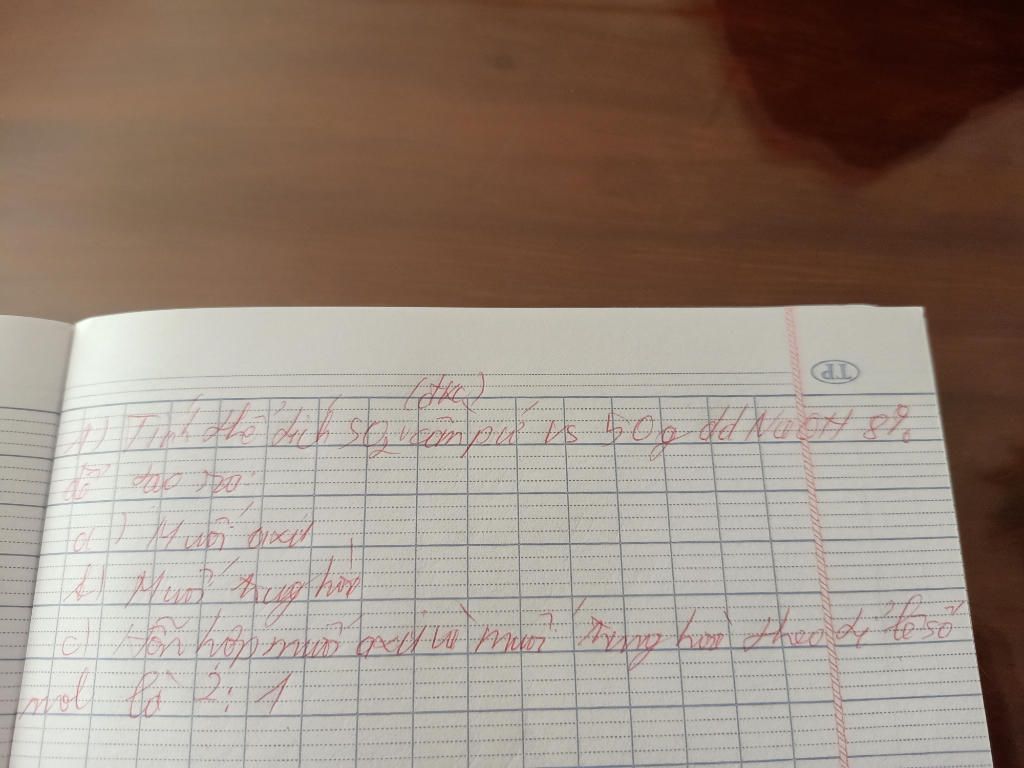 TP
(đkc)
1) Tính thể tích SO2 cần pứ vs 50g dd NaOH 8%
để tạo ra:
a) Muối axit
b) Muối trung hòa
c) Hỗn hợp muối axit và muối trung hoà theo tỉ lệ số
mol là 2:1